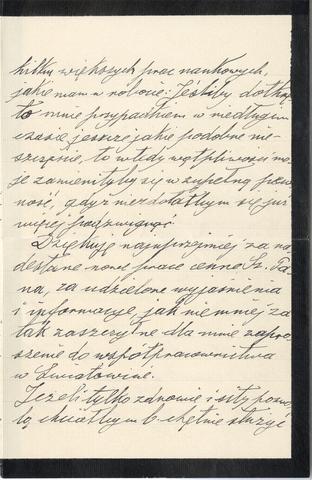 kilku większych prac naukowych,
jakie mam w robocie. Jeśliby dotknę-
ło mnie przypadkiem w niedługim
czasie jeszcze jakie podobne nie-
szczęście, to wtedy wątpliwości mo-
je zamieniłyby się w zupełną pew-
ność, gdyż nie zdołałbym się już
więcej podźwignąć.
Dziękuję najuprzejmiej za na-
desłane nowe prace cenne Sz. Pa-
na, za udzielone wyjaśnienia
i informacye, jak niemniej za
tak zaszczytne dla mnie zapro-
szenie do współpracownictwa
w Światowicie.
Jeżeli tylko zdrowie i siły pozwo-
lą chciałbym b. chętnie służyć